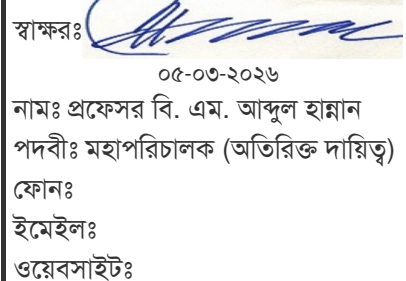 স্বাক্ষরঃ
০৫-০৩-২০২৬
নামঃ প্রফেসর বি. এম. আব্দুল হান্নান
পদবীঃ মহাপরিচালক (অতিরিক্ত দায়িত্ব)
ফোনঃ
ইমেইলঃ
ওয়েবসাইটঃ